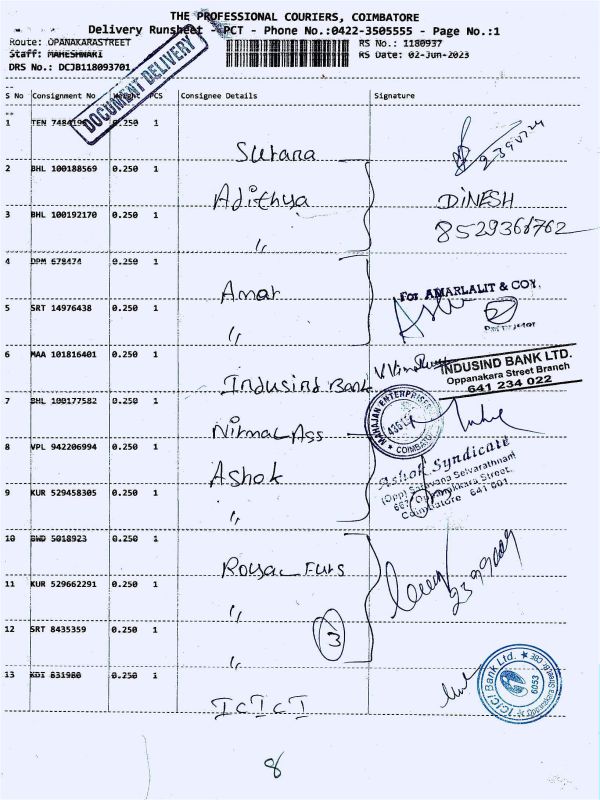 THE PROFESSIONAL COURIERS, COIMBATORE
Delivery Runsheet - PCT - Phone No.:0422-3505555 - Page No.:1
Route: OPANAKARASTREET
RS No.: 1180937
Staff: MAHESHWARI
RS Date: 02-Jun-2023
DRS No.: DCJB118093701
DOCUMENT DELIVERY
S No Consignment No Weight PCS Consignee Details Signature
1 0.250 1
Surana
2 BHL 100188569 0.250 1
Adithya DINESH
3 BHL 100192170 0.250 1
〃
4 DPM 678474 0.250 1
Amar For AMARLALIT & COY.
5 SRT 14976438 0.250 1
〃
6 MAA 101816401 0.250 1
Indusind Bank
INDUSIND BANK LTD.
Oppanakara Street Branch
641 234 022
7 BHL 100177582 0.250 1
Nirmal Ass
MAHAJAN ENTERPRISES
COIMBATORE
8 VPL 942206994 0.250 1
Ashok
Ashok Syndicate
(Opp) Saravana Selvarathnam
667, Oppanakkara Street,
Coimbatore 641 001
9 KUR 529458305 0.250 1
〃
10 BWD 5018923 0.250 1
Royal Furs
11 KUR 529662291 0.250 1
〃
12 SRT 8435359 0.250 1
3
〃
13 KDI 831980 0.250 1
ICICI
ICICI Bank Ltd.
6053
8